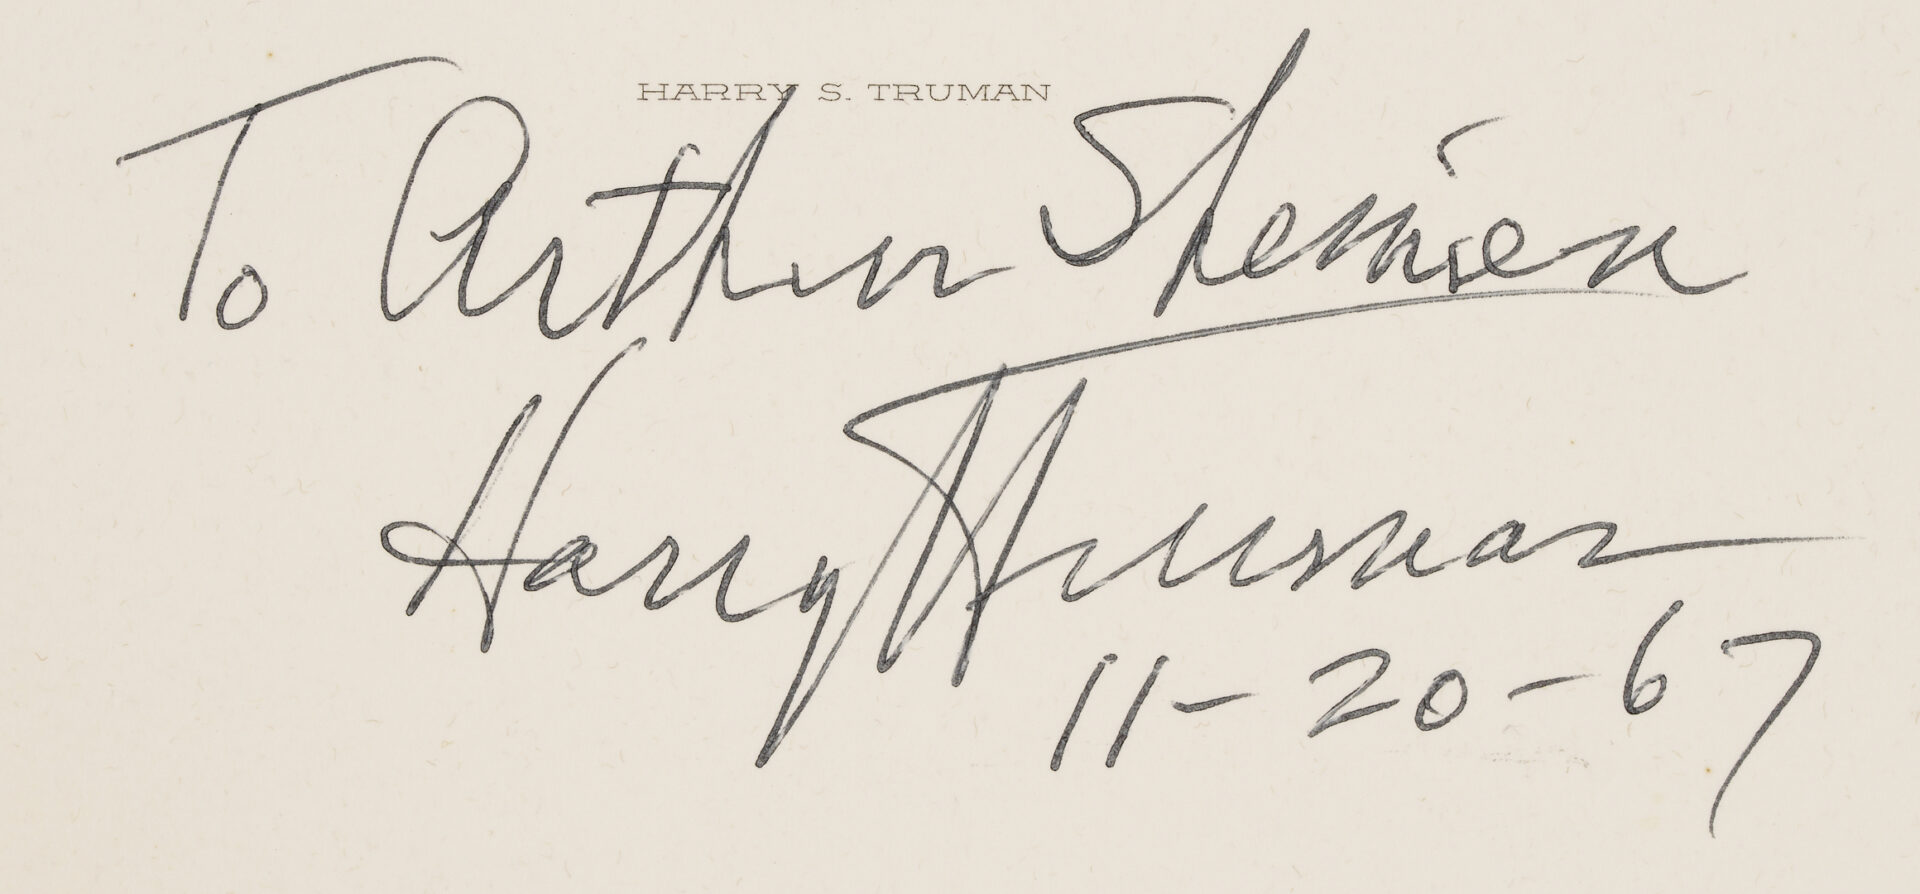 HARRY S. TRUMAN
To Arthur
Harry Truman
11-20-67